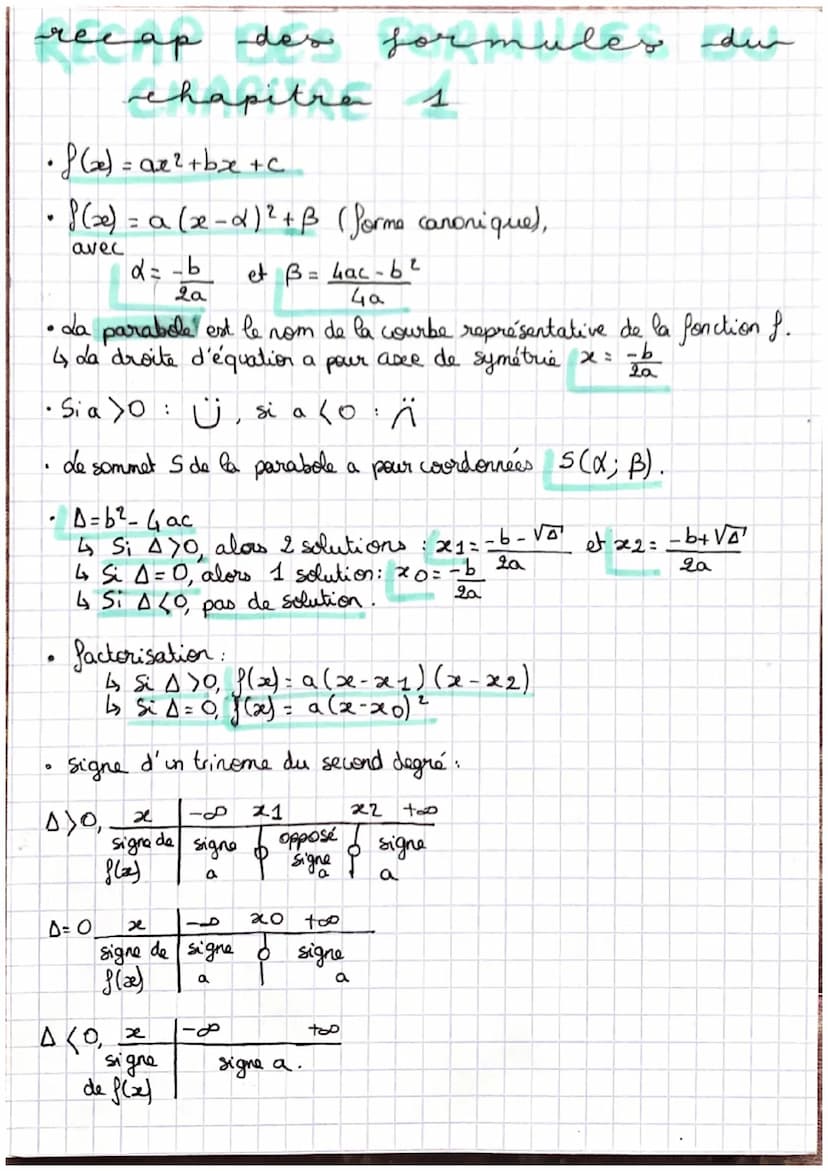 recap des formules du
chapitre 1
• f(x) = ax²+bx+c
• f(x) = a(x-α)²+β (forme canonique),
avec
α = -b/2a et β = 4ac-b²/4a
• La parabole est le nom de la courbe représentative de la fonction f.
↳ La droite d'équation a pour axe de symétrie x = -b/2a
• Si a>0 : ü, si a<0 : n̈
• Le sommet S de la parabole a pour coordonnées S(α; β).
• Δ=b²-4ac
↳ Si Δ>0, alors 2 solutions : x1 = -b-√Δ/2a et x2 = -b+√Δ/2a
↳ Si Δ=0, alors 1 solution : x0 = -b/2a
↳ Si Δ<0, pas de solution.
• factorisation :
↳ Si Δ>0, f(x) = a(x-x1)(x-x2)
↳ Si Δ=0, f(x) = a(x-x0)²
• signe d'un trinome du second degré :
Δ>0, x -∞ x1 x2 +∞
signe de signe opposé signe
f(x) a signe a a
Δ=0 x -∞ x0 +∞
signe de signe signe
f(x) a a
Δ<0, x -∞ +∞
signe signe a.
de f(x)